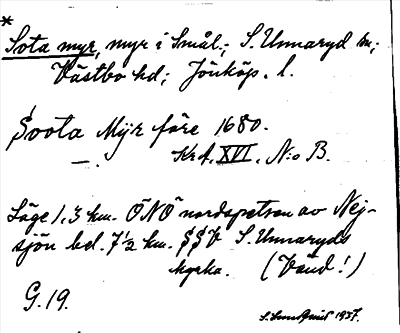 *
Sota myr, myr i Smål.; S. Unnaryd sn;
Västbo hd; Jönköp. l.
Soota Myr före 1680.
— . Krt. XVI. N:o B.
Läge 1,3 km. ÖNÖ nordspetsen av Nej-
sjön bel. 7½ km. SSV S. Unnaryds
kyrka. (Vänd!)
G. 19.
1937.